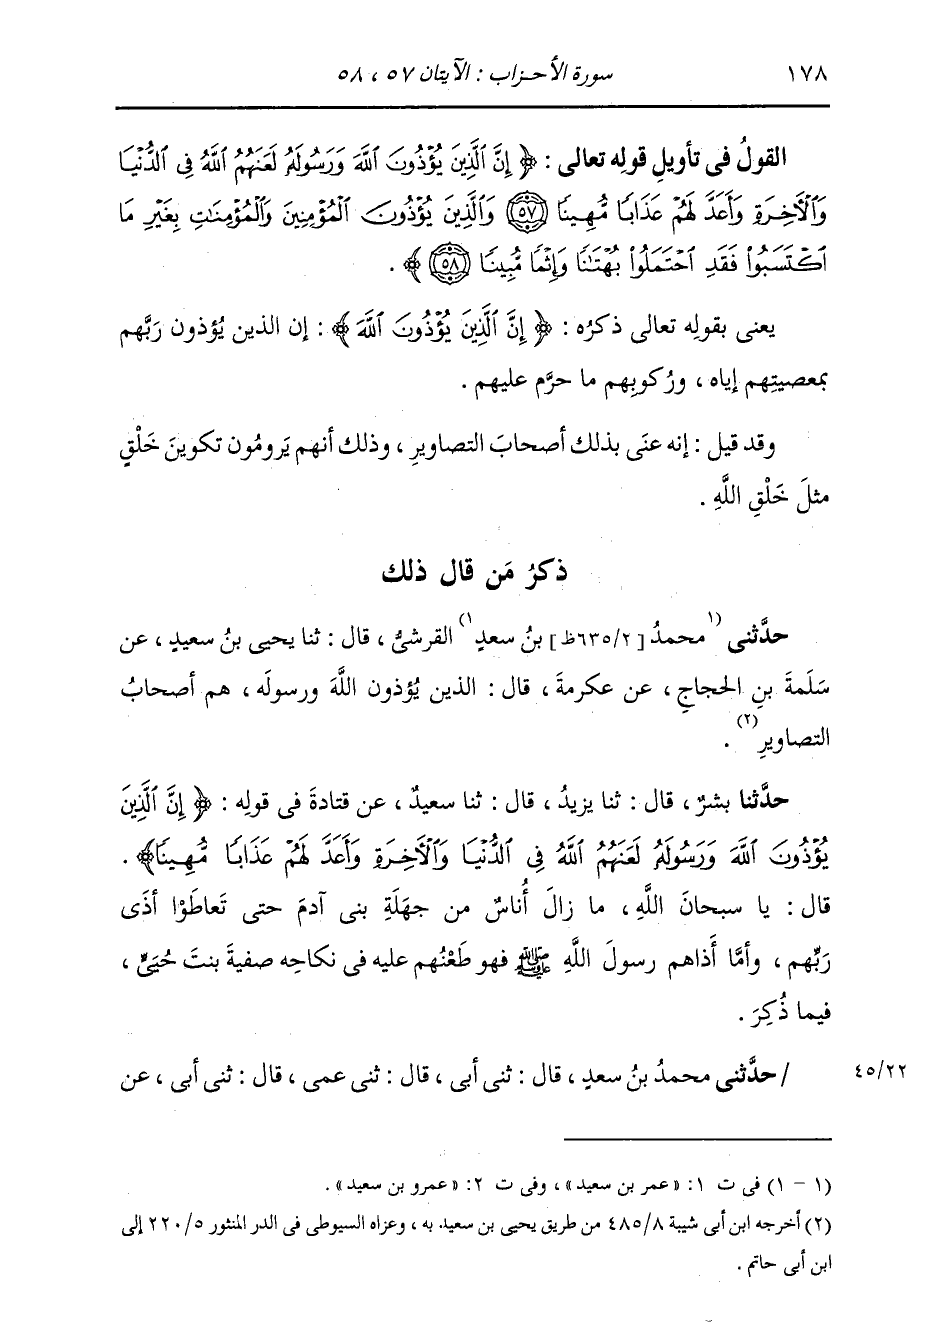 ١٧٨
سورة الأحزاب : الآيتان ٥٧ ، ٥٨
القولُ فى تأويلِ قولِه تعالى : ﴿ إِنَّ ٱلَّذِينَ يُؤْذُونَ ٱللَّهَ وَرَسُولَهُۥ لَعَنَهُمُ ٱللَّهُ فِى ٱلدُّنْيَا
وَٱلْأَخِرَةِ وَأَعَدَّ لَهُمْ عَذَابًا مُّهِينًا ٥٧ وَٱلَّذِينَ يُؤْذُونَ ٱلْمُؤْمِنِينَ وَٱلْمُؤْمِنَٰتِ بِغَيْرِ مَا
ٱكْتَسَبُوا۟ فَقَدِ ٱحْتَمَلُوا۟ بُهْتَٰنًا وَإِثْمًا مُّبِينًا ٥٨ ﴾ .
يعنى بقولِه تعالى ذكرُه : ﴿ إِنَّ ٱلَّذِينَ يُؤْذُونَ ٱللَّهَ ﴾ : إن الذين يُؤذون رَبَّهم
بمعصيتِهم إياه ، ورُكوبِهم ما حرَّم عليهم .
وقد قيل : إنه عنَى بذلك أصحابَ التصاويرِ ، وذلك أنهم يَرومُون تكوينَ خَلْقٍ
مثلَ خَلْقِ اللَّهِ .
ذكرُ مَن قال ذلك
حدَّثنى (١محمدُ [٦٣٥/٢ظ] بنُ سعدٍ١) القرشىُّ ، قال : ثنا يحيى بنُ سعيدٍ ، عن
سَلَمةَ بنِ الحجاجِ ، عن عكرمةَ ، قال : الذين يُؤذون اللَّهَ ورسولَه ، هم أصحابُ
التصاويرِ(٢) .
حدَّثنا بشرٌ ، قال : ثنا يزيدُ ، قال : ثنا سعيدٌ ، عن قتادةَ فى قولِه : ﴿ إِنَّ ٱلَّذِينَ
يُؤْذُونَ ٱللَّهَ وَرَسُولَهُۥ لَعَنَهُمُ ٱللَّهُ فِى ٱلدُّنْيَا وَٱلْأَخِرَةِ وَأَعَدَّ لَهُمْ عَذَابًا مُّهِينًا﴾ .
قال : يا سبحانَ اللَّهِ ، ما زالَ أُناسٌ من جهَلَةِ بنى آدمَ حتى تَعاطَوْا أذَى
رَبِّهم ، وأمَّا أَذاهم رسولَ اللَّهِ ﷺ فهو طَعْنُهم عليه فى نكاحِه صفيةَ بنتَ حُيَىٍّ ،
فيما ذُكِرَ .
/ حدَّثنى محمدُ بنُ سعدٍ ، قال : ثنى أبى ، قال : ثنى عمى ، قال : ثنى أبى ، عن
٤٥/٢٢
(١ - ١) فى ت ١: «عمر بن سعيد» ، وفى ت ٢: «عمرو بن سعيد» .
(٢) أخرجه ابن أبى شيبة ٤٨٥/٨ من طريق يحيى بن سعيد به ، وعزاه السيوطى فى الدر المنثور ٢٢٠/٥ إلى
ابن أبى حاتم .